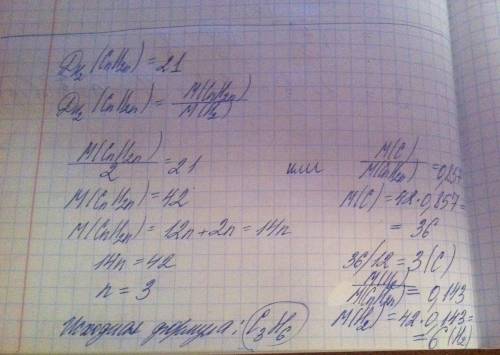 D_H₂ (CnH₂n) = 21
D_H₂ (CnH₂n) = M(CnH₂n) / M(H₂)
M(CnH₂n) / 2 = 21
M(CnH₂n) = 42
M(CnH₂n) = 12n + 2n = 14n
14n = 42
n = 3
Исходная формула: C₃H₆
или M(C) / M(CnH₂n) = 0,857
M(C) = 42 · 0,857 =
= 36
36/12 = 3 (C)
M(H₂) / M(CnH₂n) = 0,143
M(H₂) = 42 · 0,143 =
= 6 (H₂)